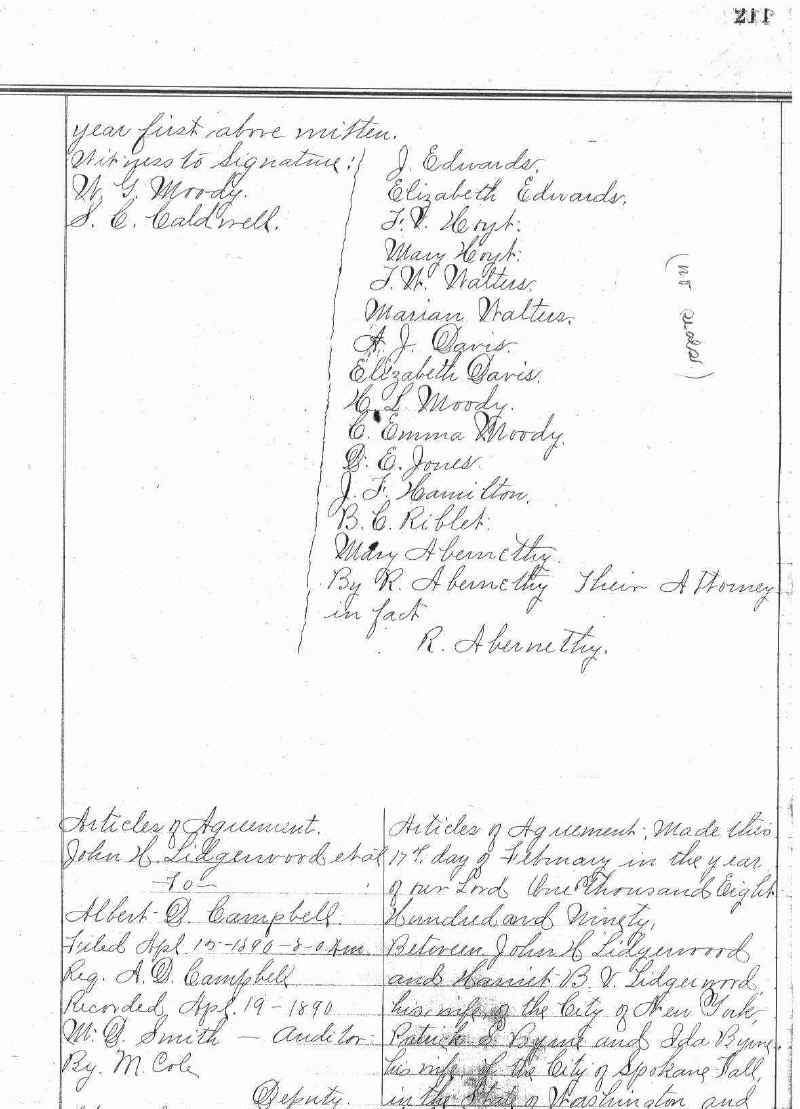 211
year first above written.
Witness to Signature:
W. G. Moody.
S. C. Caldwell.
J. Edwards.
Elizabeth Edwards.
F. V. Hoyt.
Mary Hoyt.
F. W. Walters.
Marian Walters.
A. J. Davis.
Elizabeth Davis.
H. L. Moody.
C. Emma Moody.
D. E. Jones.
J. F. Hamilton.
B. C. Riblet.
Mary Abernethy.
By R. Abernethy Their Attorney
in fact
R. Abernethy.
(no seals.)
Articles of Agreement.
John H. Lidgerwood et al
-To-
Albert D. Campbell.
Filed Apl. 15-1890-8-0 Am.
Reg. A. D. Campbell
Recorded, Apl. 19-1890
M. D. Smith - Auditor.
By. M. Cole
Deputy.
Articles of Agreement, Made this
17th. day of February in the year
of our Lord One Thousand Eight
Hundred and Ninety,
Between John H Lidgerwood
and Harriet B. V. Lidgerwood,
his wife, of the City of New York,
Patrick S. Byrne and Ida Byrne.
his wife of the City of Spokane Fall,
in the State of Washington and